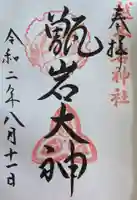 奉拝
甑岩大神
令和二年八月十一日